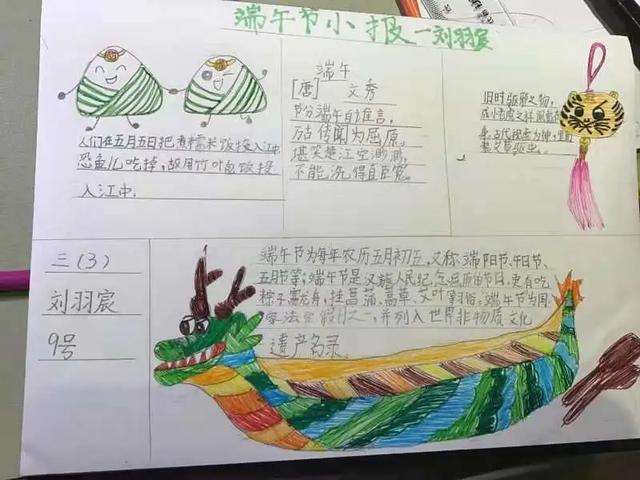 端午节小报—刘羽宸
人们在五月五日把煮糯米饭投入江中
恐鱼儿吃掉,故用竹叶包饭投
入江中.
端午
[唐] 文秀
节分端午自谁言,
万古传闻为屈原。
堪笑楚江空渺渺,
不能洗得直臣冤。
旧时驱邪之物,
三(3)
刘羽宸
9号
端午节为每年农历五月初五,又称端阳节、午日节、
五月节等;端午节是汉族人民纪念屈原的节日,更有吃
粽子,赛龙舟,挂菖蒲、蒿草、艾叶等习俗,端午节为国
家法定假日之一,并列入世界非物质文化
遗产名录。